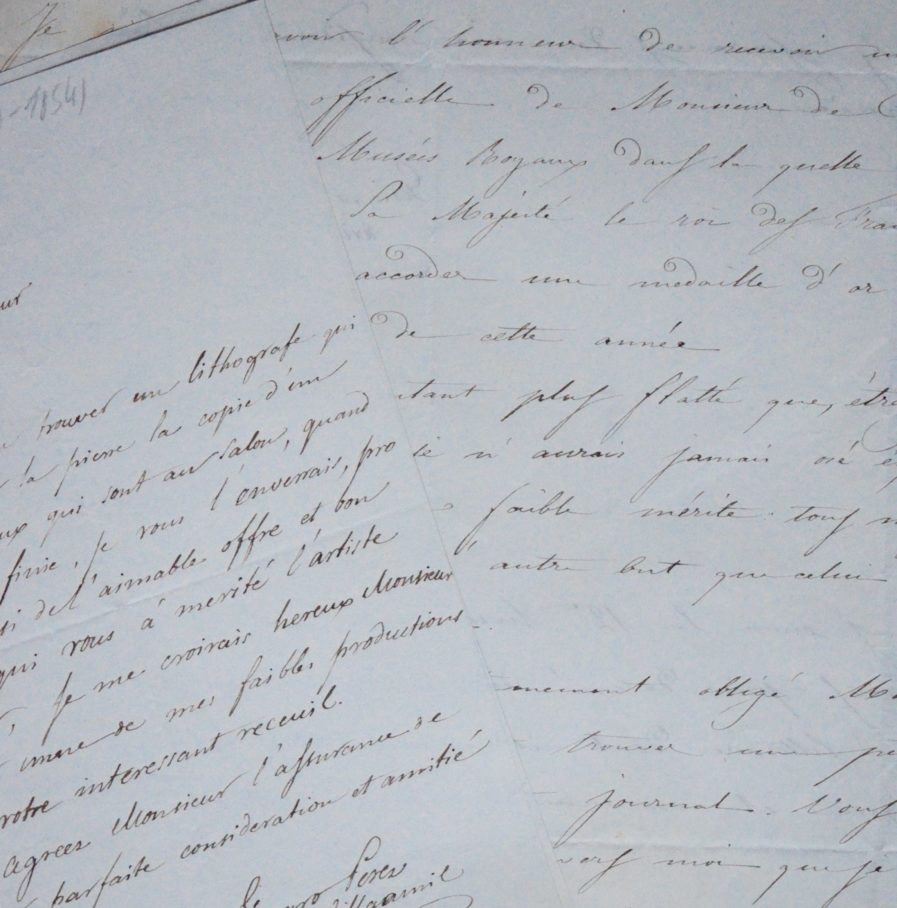 Je
-1854)
eur
trouver un lithografe qui
la pierre la copie d'un
ux qui sont au salon, quand
finie, je vous l'enverrais, pro
si de l'aimable offre et bon
qui vous à merité l'artiste
Je me croirais hereux Monsieur
une de mes faibles productions
votre interessant receuil.
agreez Monsieur l'assurance de
parfaite consideration et amitié
Perez
Villaamil
avoir l'honneur de recevoir un
officielle de Monsieur de
Musées Royaux dans la quelle
Sa Majesté le roi des Fra
accorder une medaille d'or
de cette année
utant plus flatté que, étr
je n'aurais jamais osé e
faible mérite tous m
autre but que celui
mement obligé M
trouver une pe
journal. Vous
vers moi que je